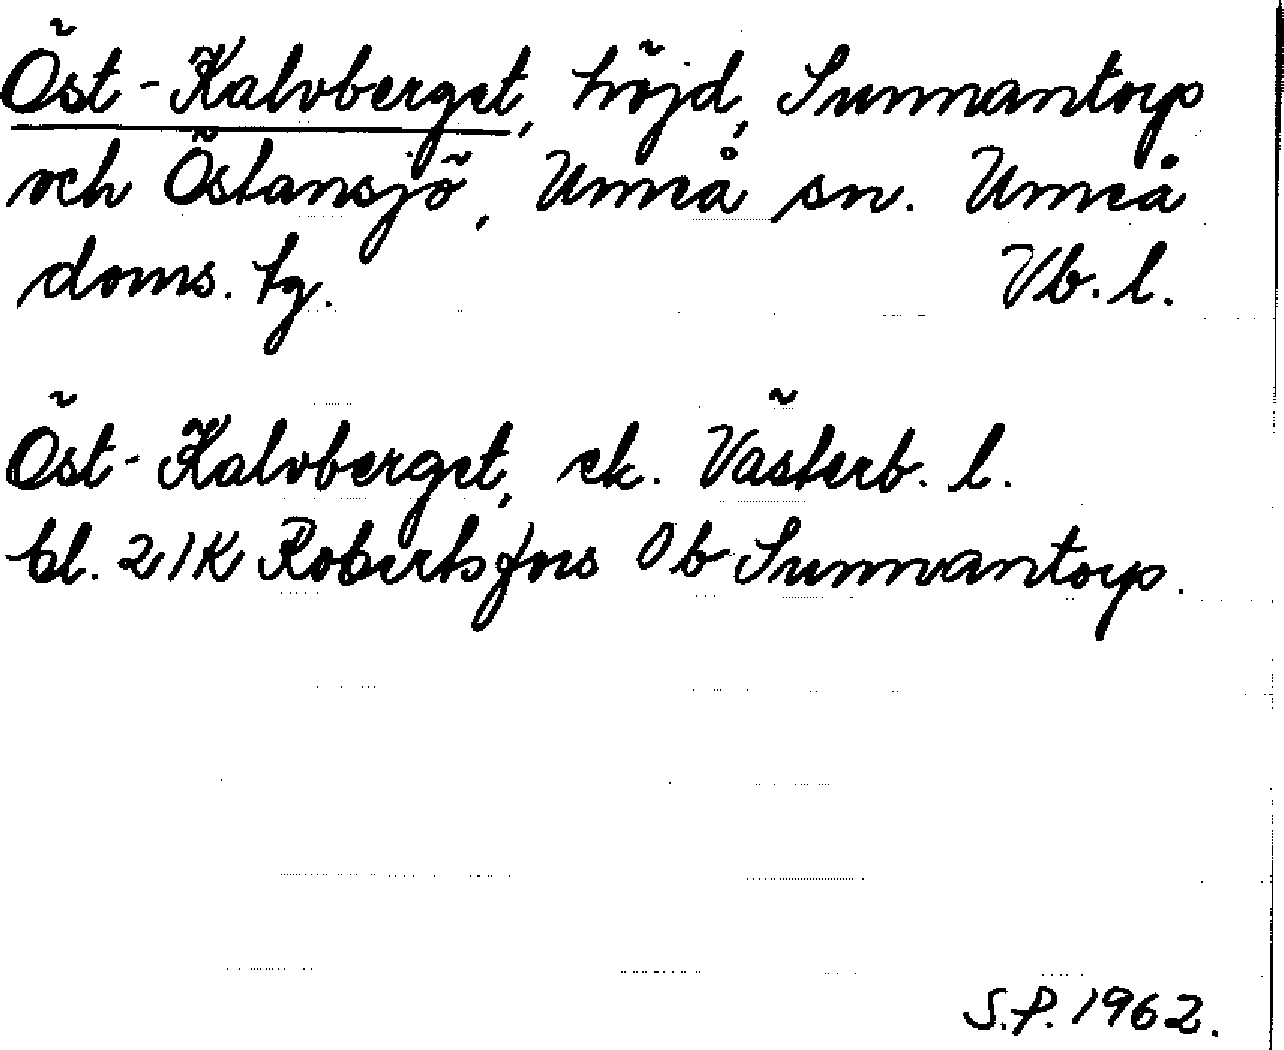 Öst-Kalvberget, höjd, Sunnantorp
och Östansjö, Umeå sn. Umeå
doms. tg. Vb. l.
Öst-Kalvberget, ek. Västerb. l.
bl. 21K Robertsfors 0b Sunnantorp.
S.P. 1962.